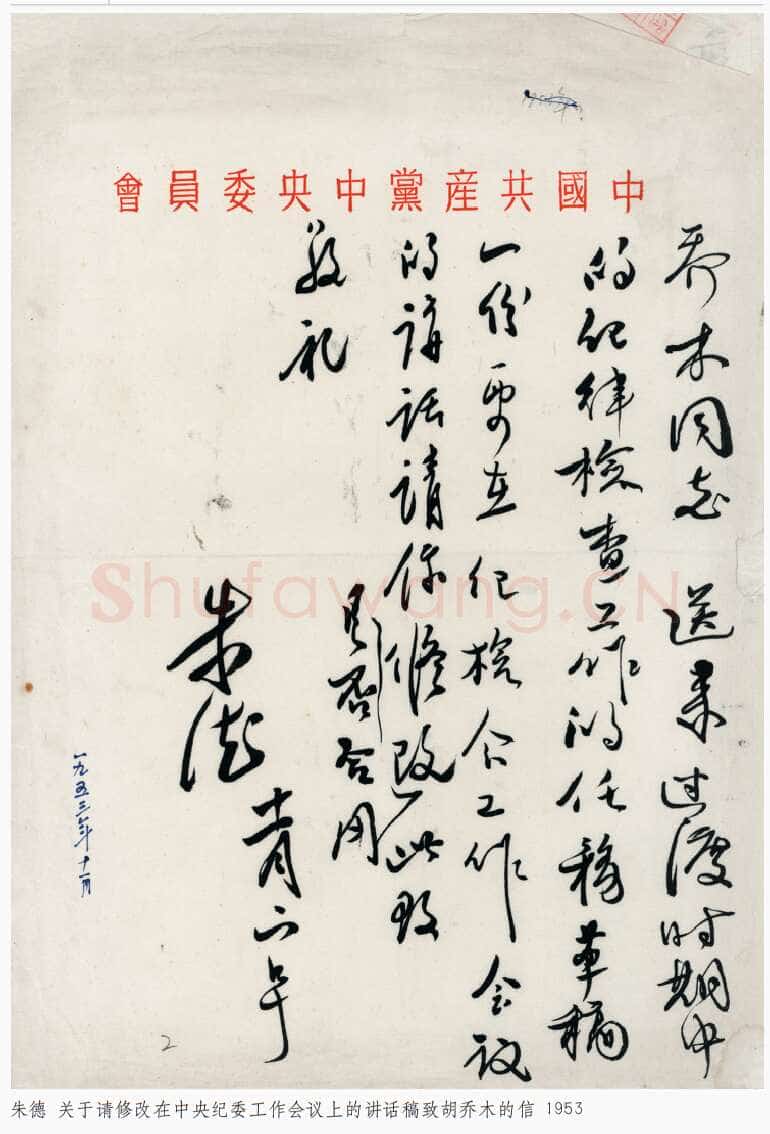 中國共産黨中央委員會
乔木同志 送来过渡时期中
的纪律檢查工作的任務草稿
一份要在纪檢会工作会议
的講話請你修改 此致
是否合用
敬礼
朱德
十一月
一九五三年十一月
2
Shufawang.CN
朱德 关于请修改在中央纪委工作会议上的讲话稿致胡乔木的信 1953